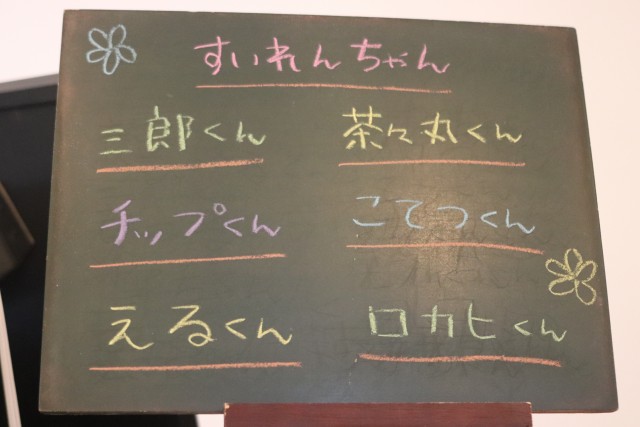 すいれんちゃん
三郎くん 茶々丸くん
チップくん こてつくん
えるくん ロカヒくん